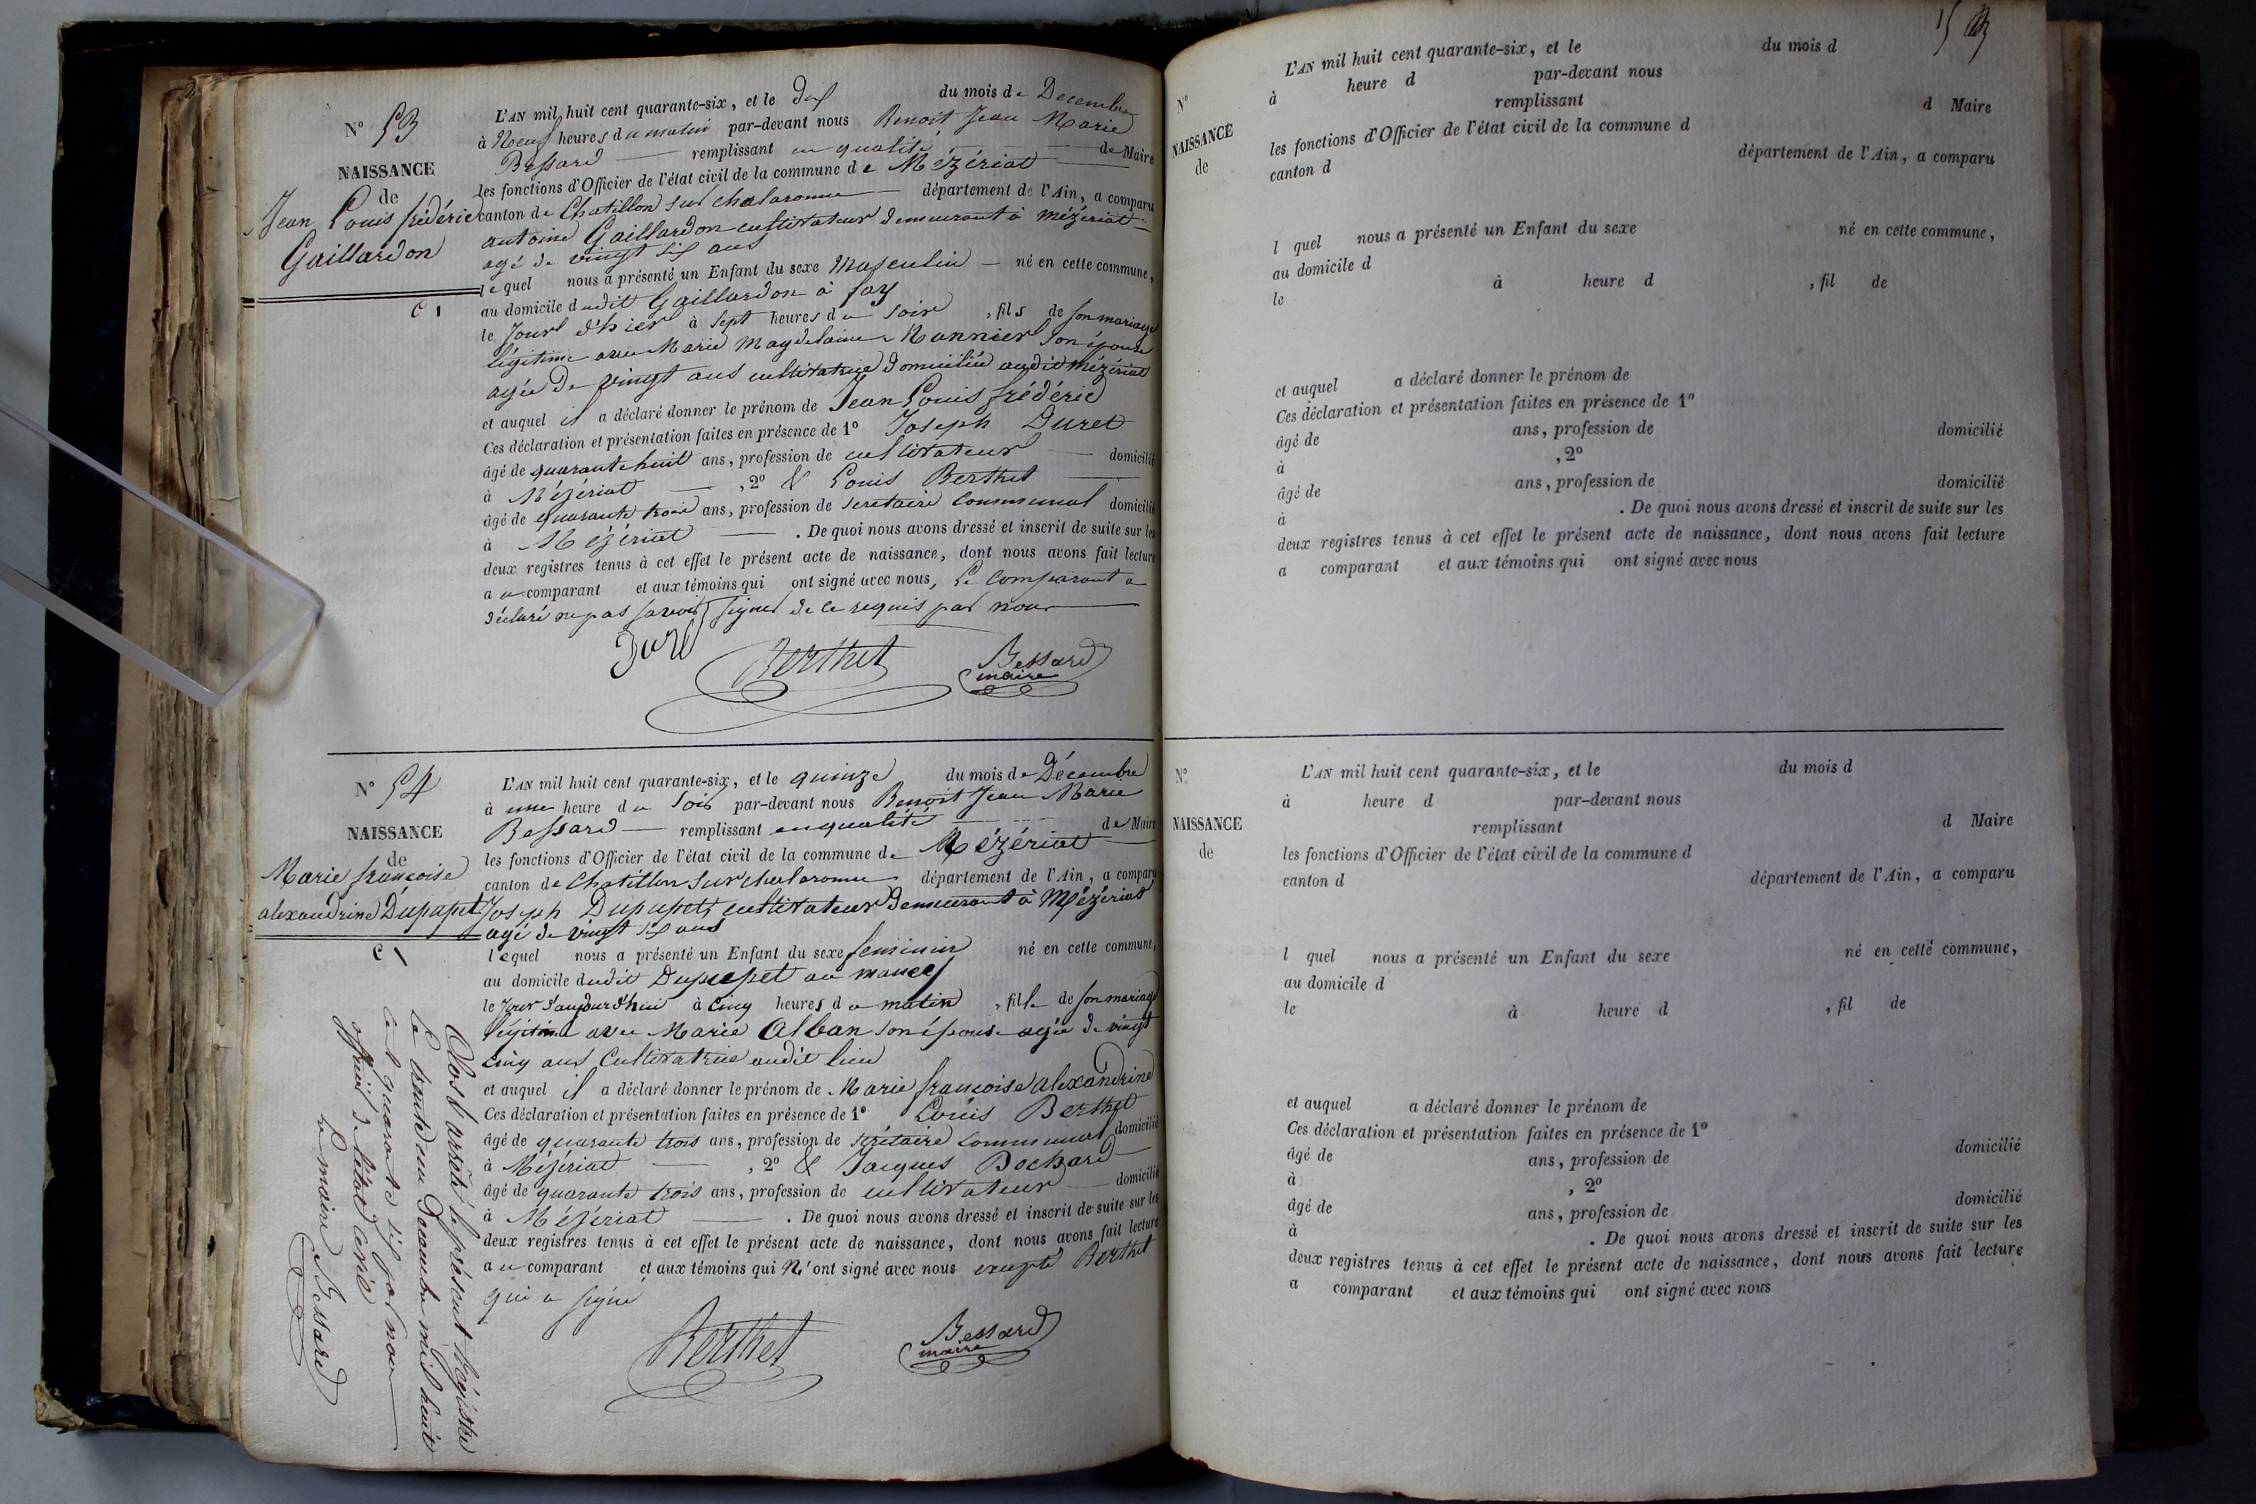 N° 53
NAISSANCE
de
Jean Louis frédéric
Gaillardon
C 1
L'AN mil huit cent quarante-six, et le dix du mois de Decembre
à Neuf heures du matin par-devant nous Benoit Jean Marie
Bessard remplissant en qualité de Maire
les fonctions d'Officier de l'état civil de la commune de Mézériat
canton de Chatillon sur chalaronne département de l'Ain, a comparu
antoine Gaillardon cultivateur demeurant à Mézériat
agé de vingt six ans
lequel nous a présenté un Enfant du sexe Masculin né en cette commune,
au domicile dudit Gaillardon à fay
le Jour d'hier à Sept heures du soir, fils de son mariage
légitime avec Marie Magdelaine Monnier son épouse
agée de vingt ans cultivatrice domiciliée audit Mézériat
et auquel il a déclaré donner le prénom de Jean Louis frédéric
Ces déclaration et présentation faites en présence de 1° Joseph Duret
âgé de quarante huit ans, profession de cultivateur domicilié
à Mézériat, 2° & Louis Berthet
âgé de quarante trois ans, profession de secretaire Communal domicilié
à Mézériat. De quoi nous avons dressé et inscrit de suite sur les
deux registres tenus à cet effet le présent acte de naissance, dont nous avons fait lecture
au comparant et aux témoins qui ont signé avec nous, Le Comparant a
déclaré ne pas savoir signer de ce requis par nous
Berthet
Bessard
maire
N° 54
NAISSANCE
de
Marie francoise
alexandrine Dupupet
C 1
L'AN mil huit cent quarante-six, et le quinze du mois de Décembre
à une heure du soir par-devant nous Benoit Jean Marie
Bessard remplissant en qualité de Maire
les fonctions d'Officier de l'état civil de la commune de Mézériat
canton de Chatillon sur chalaronne département de l'Ain, a comparu
Joseph Dupupet, cultivateur demeurant à Mézériat
agé de vingt six ans
lequel nous a présenté un Enfant du sexe feminin né en cette commune,
au domicile dudit Dupupet au
le Jour d'aujourd'hui à cinq heures du matin, fille de son mariage
légitime avec Marie Alban son épouse agée de vingt
cinq ans Cultivatrice audit lieu
et auquel il a déclaré donner le prénom de Marie francoise alexandrine
Ces déclaration et présentation faites en présence de 1° Louis Berthet
âgé de quarante trois ans, profession de secrétaire communal domicilié
à Mézériat, 2° & Jacques Bochard
âgé de quarante trois ans, profession de cultivateur domicilié
à Mézériat. De quoi nous avons dressé et inscrit de suite sur les
deux registres tenus à cet effet le présent acte de naissance, dont nous avons fait lecture
au comparant et aux témoins qui N'ont signé avec nous excepté Berthet
qui a signé
Berthet
Bessard
maire
Clos & arrêté le présent Régistre
Le trente un Décembre mil huit
cent quarante six par nous
officier de l'état civil
Le maire Bessard
L'AN mil huit cent quarante-six, et le du mois d
N° à heure d par-devant nous
remplissant d Maire
NAISSANCE
de
les fonctions d'Officier de l'état civil de la commune d
canton d département de l'Ain, a comparu
l quel nous a présenté un Enfant du sexe né en cette commune,
au domicile d
le à heure d, fil de
et auquel a déclaré donner le prénom de
Ces déclaration et présentation faites en présence de 1°
âgé de ans, profession de domicilié
à, 2°
âgé de ans, profession de domicilié
à. De quoi nous avons dressé et inscrit de suite sur les
deux registres tenus à cet effet le présent acte de naissance, dont nous avons fait lecture
a comparant et aux témoins qui ont signé avec nous
N° L'AN mil huit cent quarante-six, et le du mois d
à heure d par-devant nous
NAISSANCE
de
remplissant d Maire
les fonctions d'Officier de l'état civil de la commune d
canton d département de l'Ain, a comparu
l quel nous a présenté un Enfant du sexe né en cette commune,
au domicile d
le à heure d, fil de
et auquel a déclaré donner le prénom de
Ces déclaration et présentation faites en présence de 1°
âgé de ans, profession de domicilié
à, 2°
âgé de ans, profession de domicilié
à. De quoi nous avons dressé et inscrit de suite sur les
deux registres tenus à cet effet le présent acte de naissance, dont nous avons fait lecture
a comparant et aux témoins qui ont signé avec nous